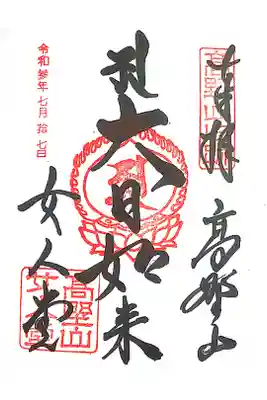 奉拝
高野山
大日如来
女人堂
令和参年七月拾七日
高野山
女人堂